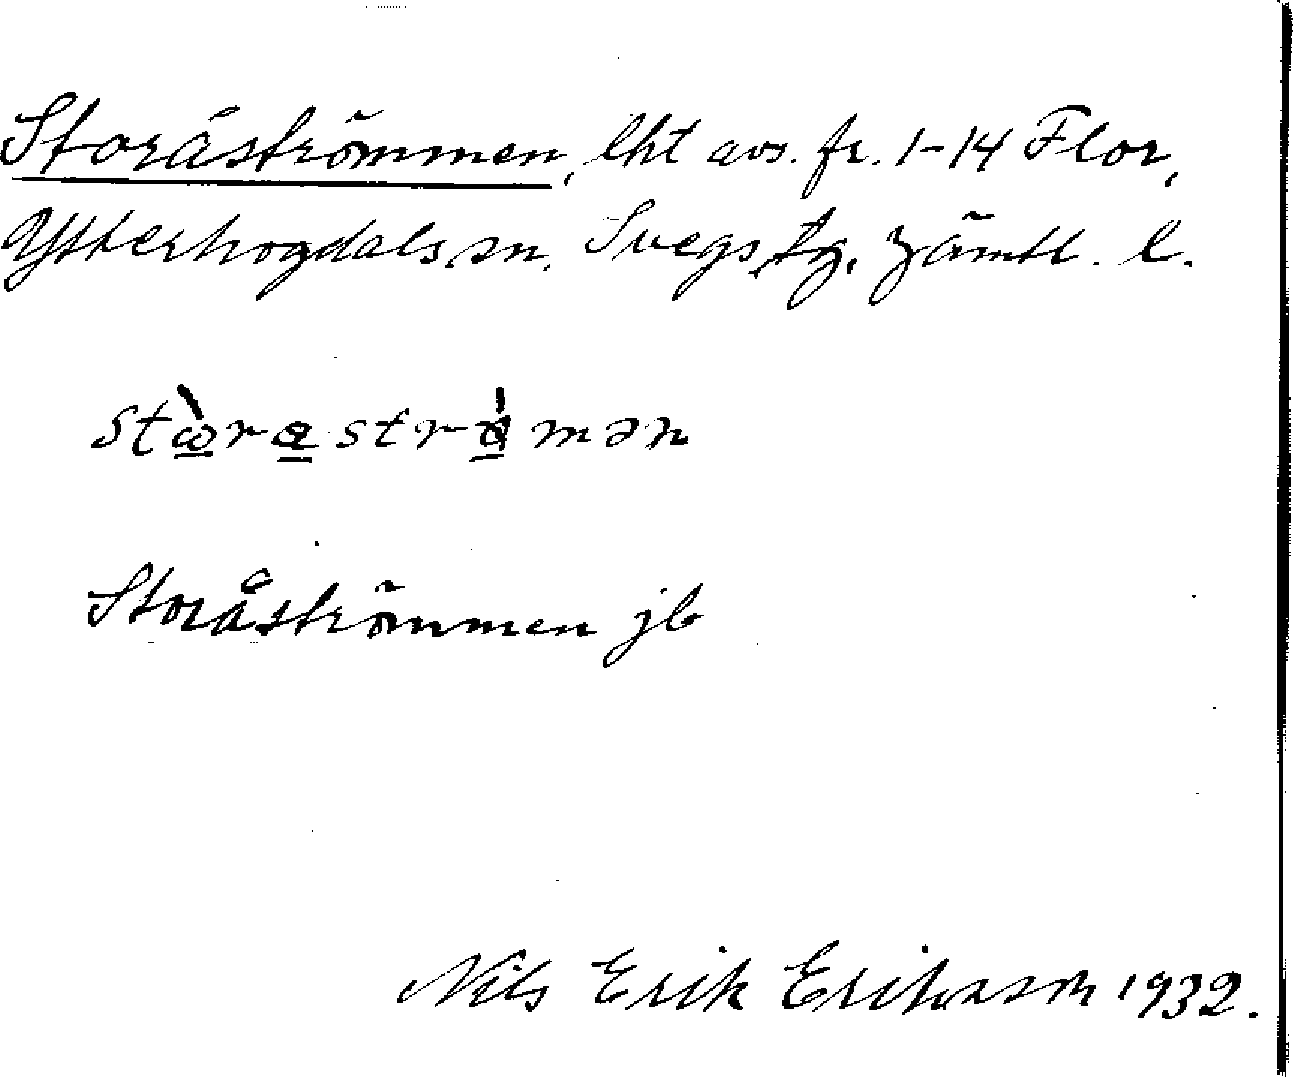 Storåströmmen, lht avs. fr. 1-14 Flor,
Ytterhogdals sn. Svegs tg. Jämtl. l.
stὼrɑstrǿmən
Storåströmmen jb
Nils Erik Eriksson 1932.